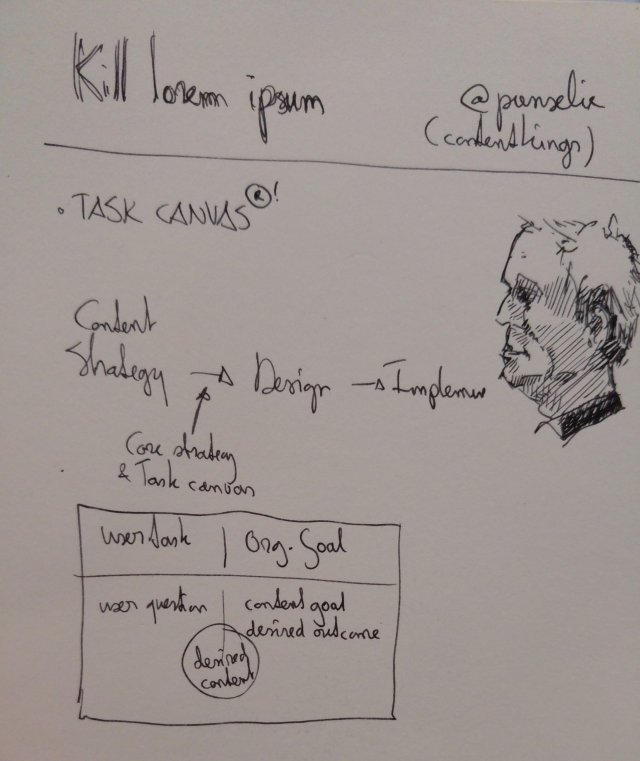 Kill lorem ipsum
@punselie
(contentkings)
• TASK CANVAS ®!
Content
Strategy → Design → Implemen
Core strategy
& Task canvas
user task | Org. Goal
user question
content goal
desired outcome
desired
content